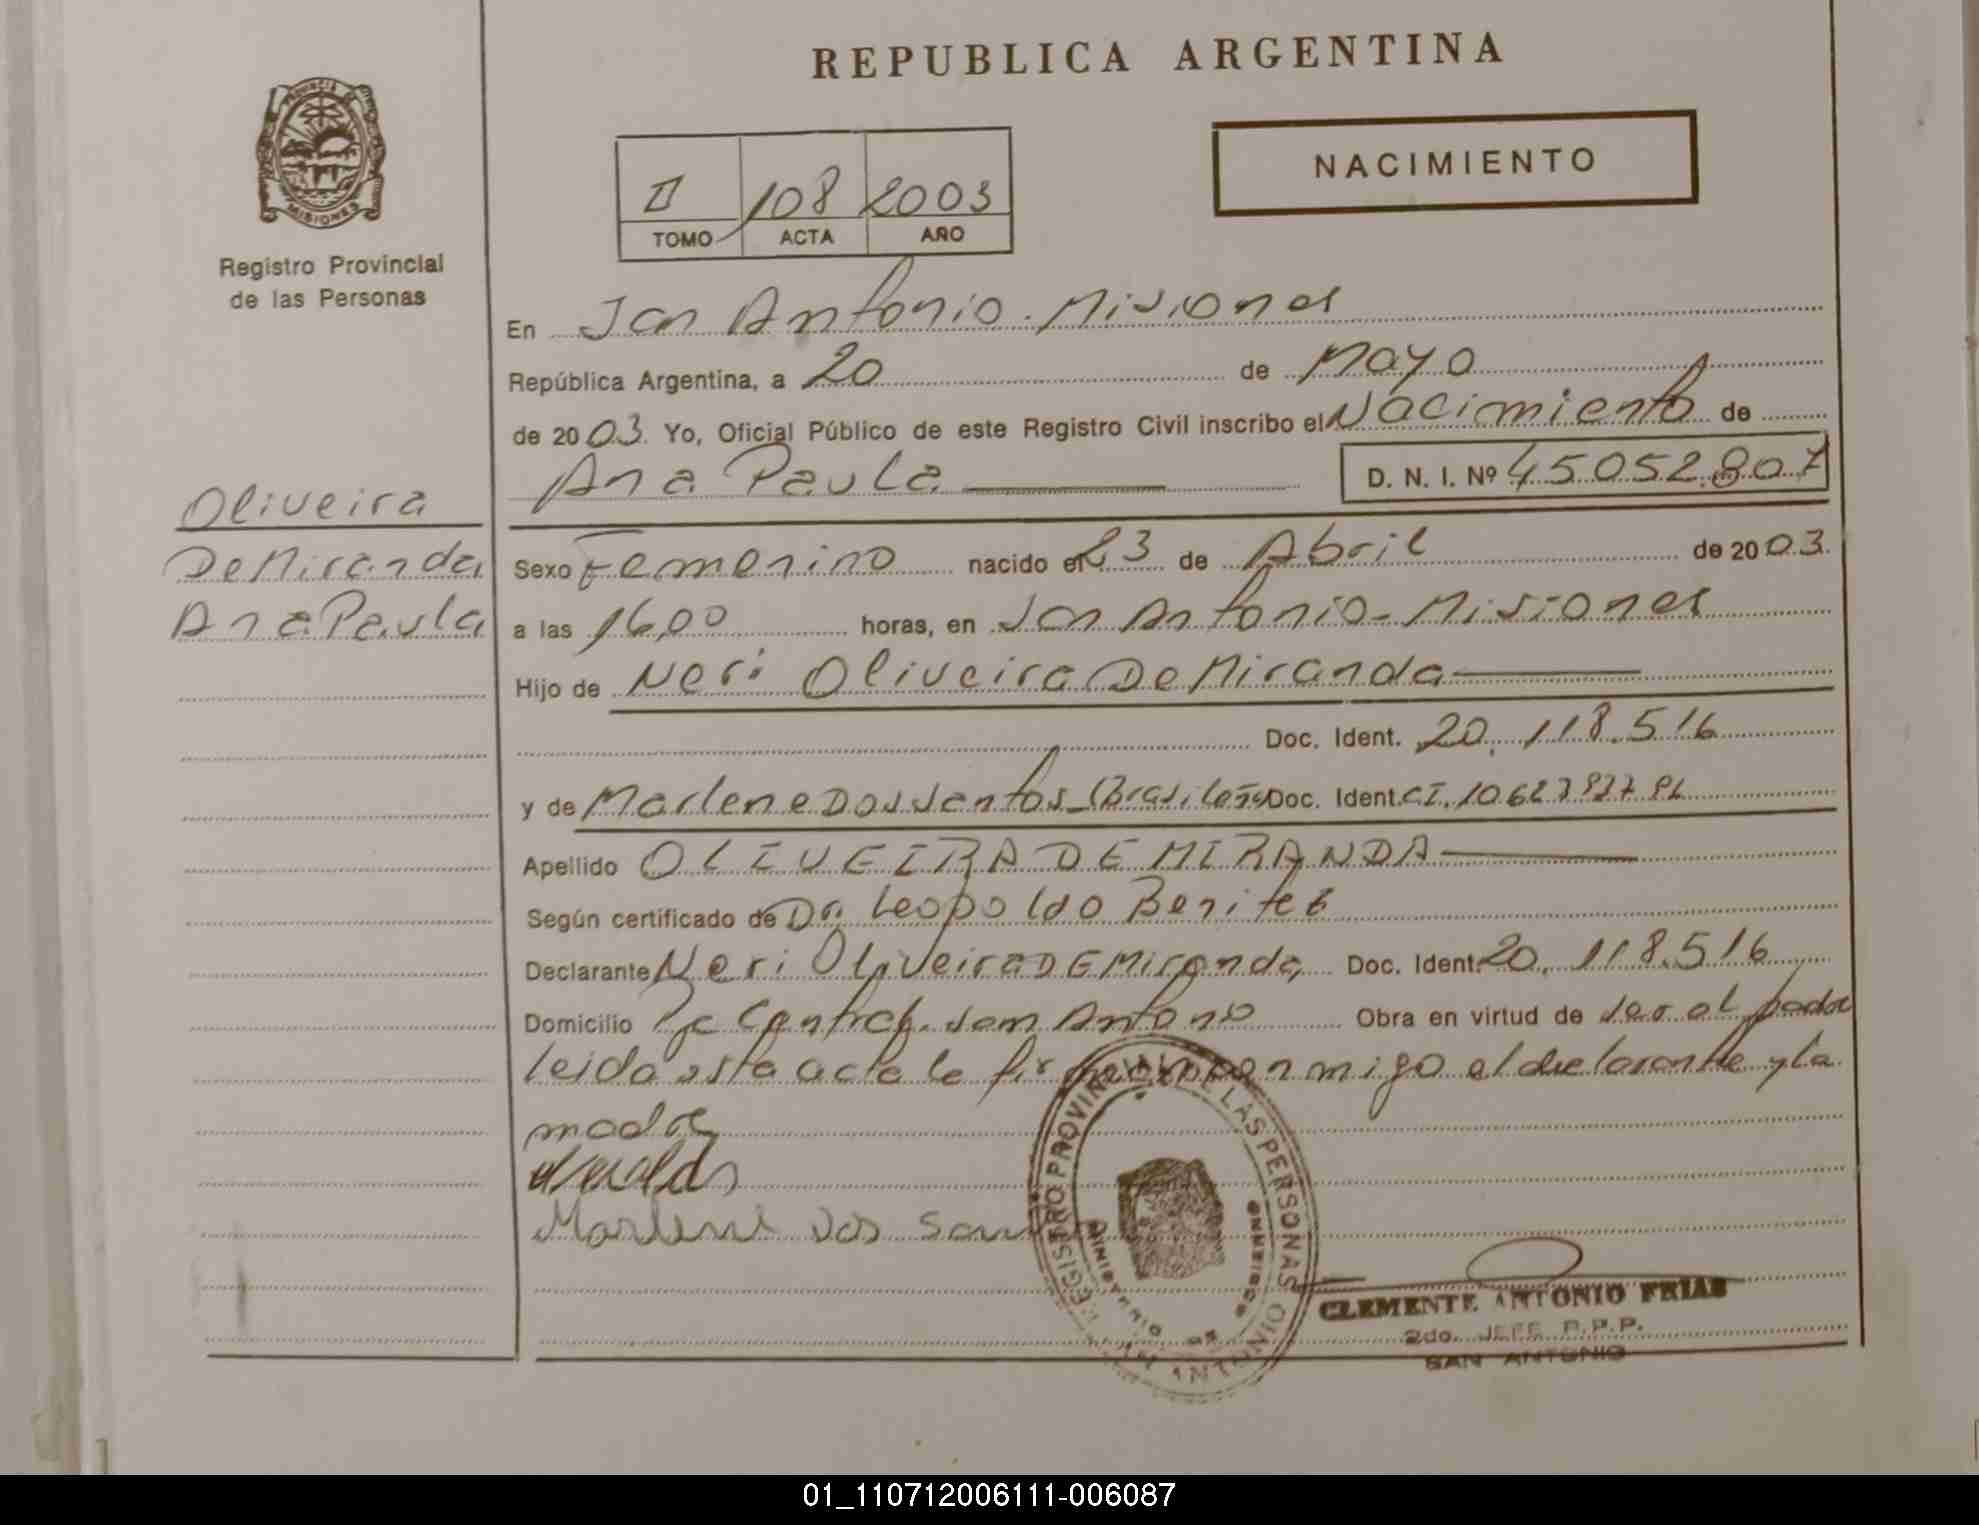 REPUBLICA ARGENTINA
PROVINCIA DE
MISIONES
Registro Provincial
de las Personas
NACIMIENTO
II 108 2003
TOMO ACTA AÑO
En San Antonio. Misiones
República Argentina, a 20 de Mayo
de 2003. Yo, Oficial Público de este Registro Civil inscribo el Nacimiento de
Ana Paula D. N. I. Nº 45.052.807
Oliveira
De Miranda
Ana Paula
Sexo Femenino nacido el 23 de Abril de 2003.
a las 16,00 horas, en San Antonio - Misiones
Hijo de Neri Oliveira De Miranda
Doc. Ident. 20.118.516
y de Marlene Dos Santos - (Brasileña Doc. Ident. CI.
Apellido OLIVEIRA DE MIRANDA
Según certificado de Dr. Leopoldo Benitez
Declarante Neri Oliveira DE Miranda Doc. Ident. 20.118.516
Domicilio San Antonio Obra en virtud de ser el padre
leida esta acta la firma conmigo el declarante y la
madre
Marleni dos San
REGISTRO PROVINCIAL DE LAS PERSONAS
MINISTERIO DE GOBIERNO
SAN ANTONIO
CLEMENTE ANTONIO FRIAS
2do. JEFE R.P.P.
SAN ANTONIO
01_110712006111-006087